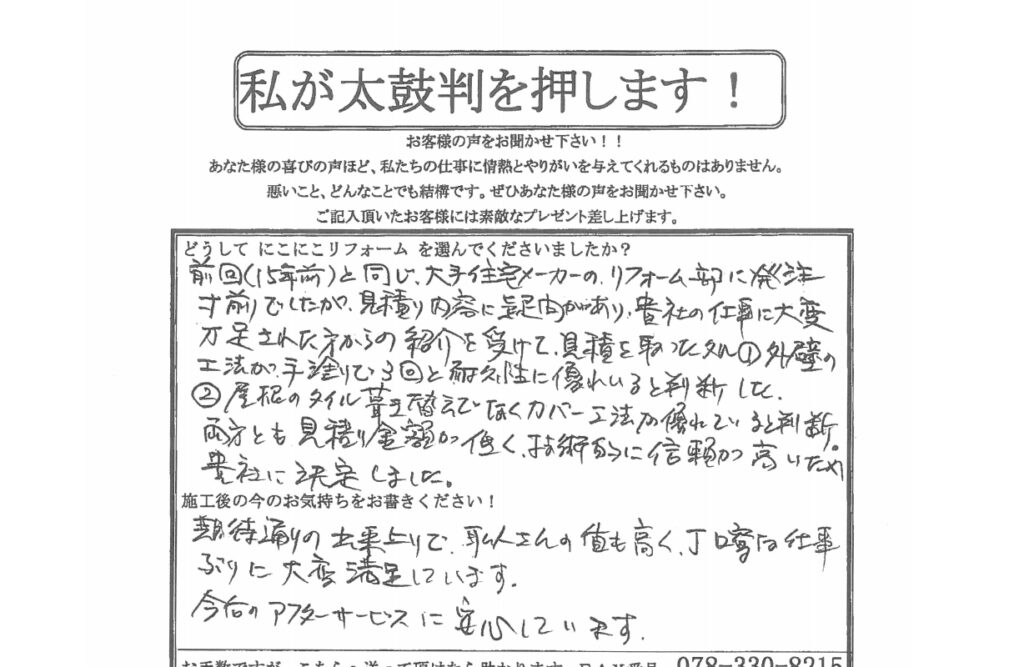 私が太鼓判を押します！
お客様の声をお聞かせ下さい！！
あなた様の喜びの声ほど、私たちの仕事に情熱とやりがいを与えてくれるものはありません。
悪いこと、どんなことでも結構です。ぜひあなた様の声をお聞かせ下さい。
ご記入頂いたお客様には素敵なプレゼント差し上げます。
どうして にこにこリフォーム を選んでくださいましたか？
前回(15年前)と同じ、大手住宅メーカーの、リフォーム部に発注
寸前でしたが、見積り内容に疑問があり、貴社の仕事に大変
満足された方からの紹介を受けて、見積を取った処 ① 外壁の
工法が、手塗りで3回と耐久性に優れいると判断した。
② 屋根のタイル葺き替えでなくカバー工法が優れていると判断。
両方とも見積り金額が低く、技術的に信頼が高いため
貴社に決定しました。
施工後の今のお気持ちをお書きください！
期待通りの出来上りで、職人さんの 値も高く、丁寧な仕事
ぶりに大変満足しています。
今后のアフターサービスに安心しています。
お手数ですが、こちらへ送って頂けたら助かります。FAX番号 078-330-8215